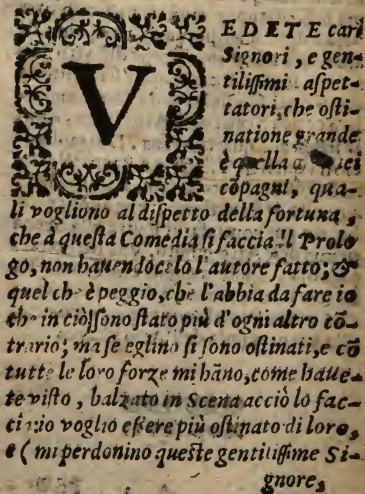 VEDETE cari
Signori, e gen-
tilissimi aspet-
tatori, che osti-
natione grande
è quella
cōpagni, qua-
li vogliono al dispetto della fortuna,
che à questa Comedia si faccia il Prolo
go, non havendocelo l'autore fatto; &
quel ch'è peggio, che l'abbia da fare io
che in ciò sono stato più d'ogni altro cō-
trario; ma se eglino si sono ostinati, e cō
tutte le loro forze mi hāno, come haue-
te visto, balzato in Scena acciò lo fac-
ci io voglio essere più ostinato di loro,
e (mi perdonino queste gentilissime Si-
gnore,